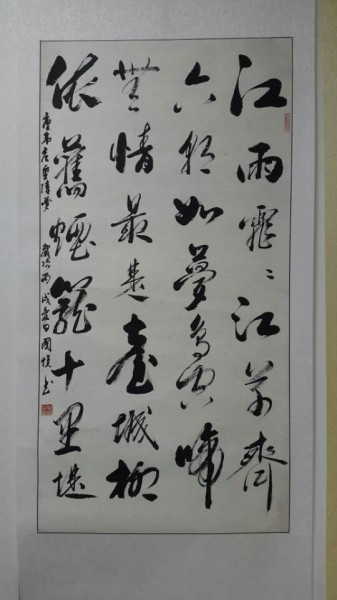 江雨霏霏江草齊
六朝如夢鳥空啼
無情最是臺城柳
依舊煙籠十里堤
唐韋庄 歲次丙戌 國 書